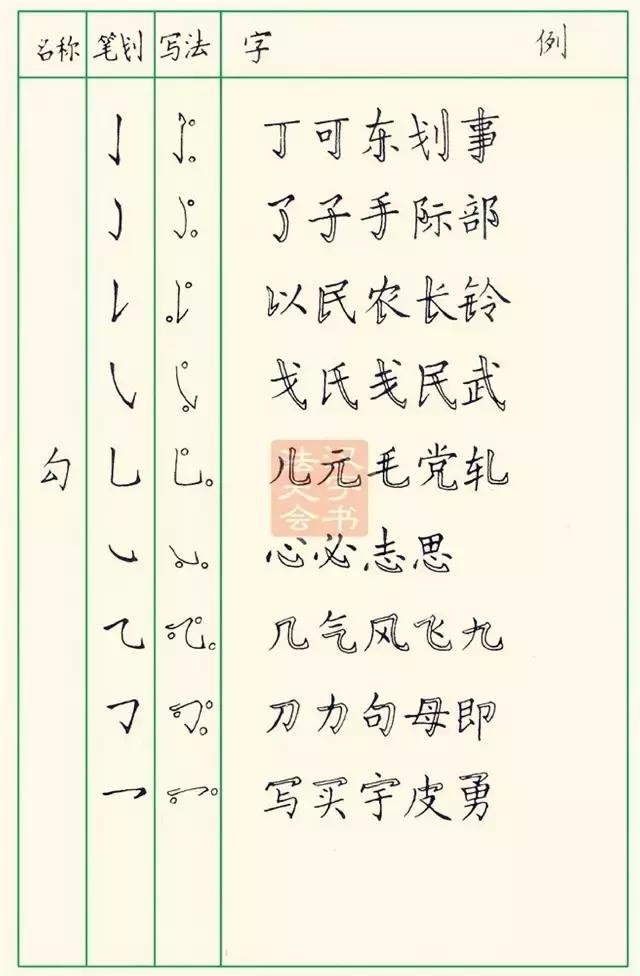 名称 笔划 写法 字 例
亅 丁可东划事
亅 了子手际部
以民农长铃
㇂ 戈氏戋民武
勾 乚 儿元毛党轧
㇃ 心必志思
乙 几气风飞九
𠃌 刀力句母即
乛 写买宇皮勇
汉字书
法大会